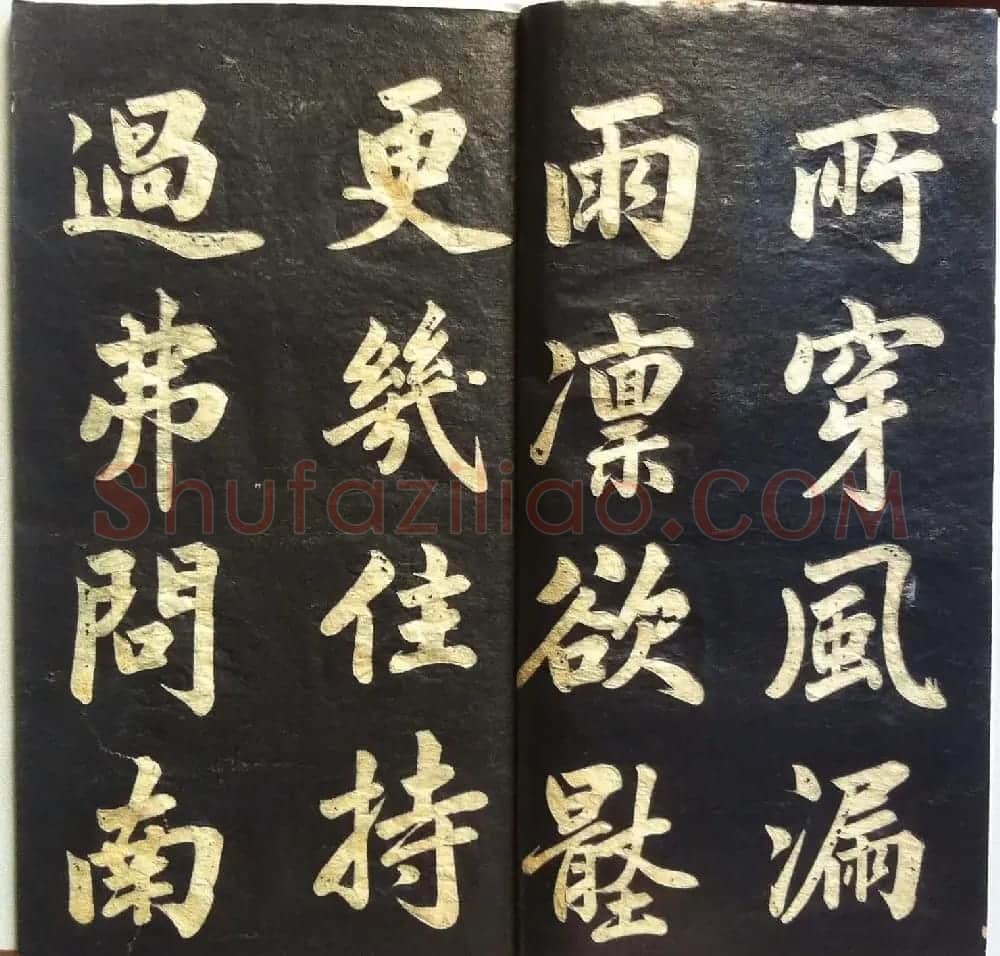 所穿風漏
雨凜欲壓
更幾住持
過弗問南
Shufaziliao.COM